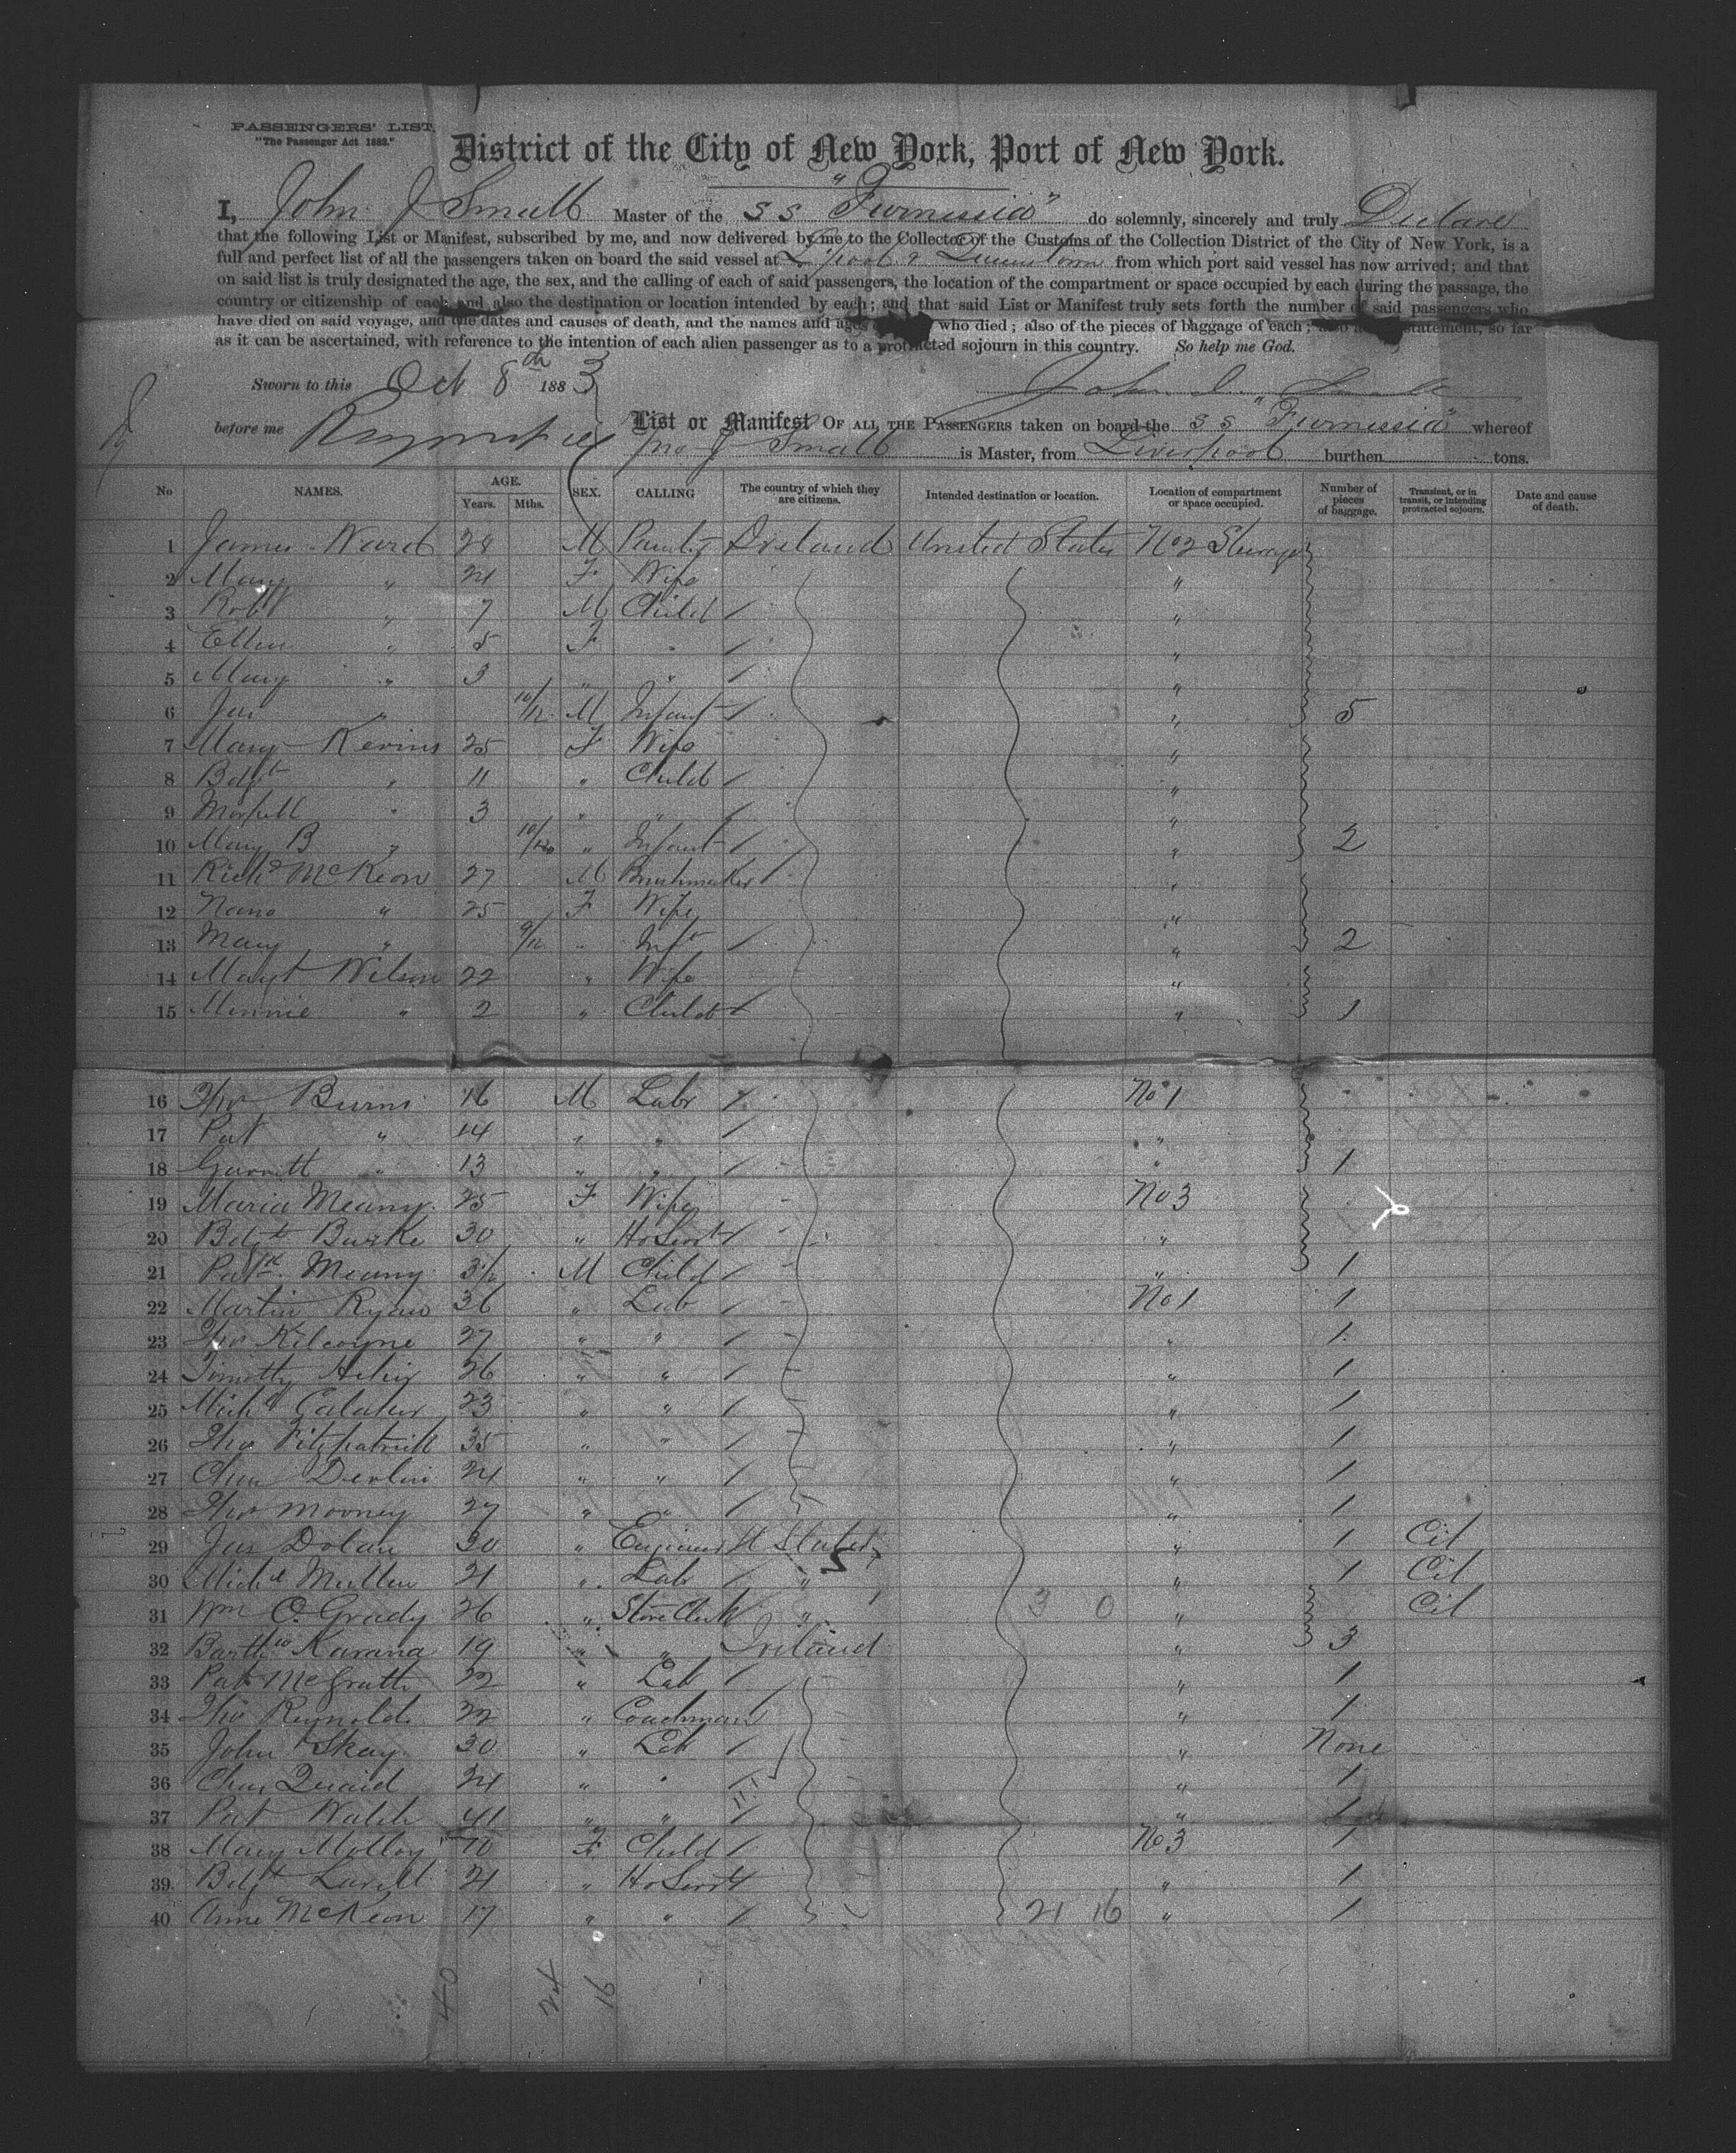 PASSENGERS' LIST.
"The Passenger Act 1882."
District of the City of New York, Port of New York.
I, John J Small Master of the S S "Furnessia" do solemnly, sincerely and truly Declare
that the following List or Manifest, subscribed by me, and now delivered by me to the Collector of the Customs of the Collection District of the City of New York, is a
full and perfect list of all the passengers taken on board the said vessel at L'pool & Queenstown from which port said vessel has now arrived; and that
on said list is truly designated the age, the sex, and the calling of each of said passengers, the location of the compartment or space occupied by each during the passage, the
country or citizenship of each and also the destination or location intended by each; and that said List or Manifest truly sets forth the number of said passengers who
have died on said voyage, and the dates and causes of death, and the names and ages who died; also of the pieces of baggage of each; also a statement, so far
as it can be ascertained, with reference to the intention of each alien passenger as to a protracted sojourn in this country. So help me God.
Sworn to this Oct 8th 1883 John J. Small
before me List or Manifest OF ALL THE PASSENGERS taken on board the S S "Furnessia" whereof
Jno J Small is Master, from Liverpool burthen tons.
No NAMES. AGE. Years. Mths. SEX. CALLING The country of which they are citizens. Intended destination or location. Location of compartment or space occupied. Number of pieces of baggage. Transient, or in transit, or intending protracted sojourn. Date and cause of death.
1 James Ward 28 M Ireland United States No 2 Steerage
2 Mary " 24 F Wife "
3 Robt " 7 M Child / "
4 Ellen " 5 F " / "
5 Mary " 3 " " / "
6 Jas " 10/12 M Infant / " 5
7 Mary Kevins 25 F Wife "
8 Bdgt " 11 " Child / "
9 " 3 " " / "
10 Mary B " 10/12 " Infant / " 2
11 Richd McKeon 27 M Brushmaker / "
12 Nano " 25 F Wife "
13 Mary " 9/12 " Inft / " 2
14 Margt Wilson 22 " Wife "
15 Minnie " 2 " Child / " 1
16 Thos Burns 16 M Labr / No 1
17 Pat " 14 " " / "
18 Garrett " 13 " " / " 1
19 Maria Meany 25 F Wife No 3
20 Bdgt Burke 30 " Ho Servt / "
21 Patk Meany 3 M Child / " 1
22 Martin Ryan 36 " Lab / No 1 1
23 Thos Kilcoyne 27 " " / " 1
24 Timothy 26 " " / " 1
25 Michl 23 " " / " 1
26 Thos Fitzpatrick 35 " " / " 1
27 Chas Devlin 24 " " / " 1
28 Thos Mooney 27 " " / " 1
29 Jas Dolan 30 " Engineer U States " 1 Cit
30 Michl Mullen 21 " Lab / " " 1 Cit
31 Wm O'Grady 26 " Store Clerk / " 3 0 " Cit
32 Bartho Kavana 19 " " Ireland " 3
33 Pat McGrath 22 " Lab / " 1
34 Thos Reynolds 22 " Coachman / " 1
35 John Skay 30 " Lab / " None
36 Chas Quaid 24 " " / " 1
37 Pat Walsh 41 " " / " 1
38 Mary Molloy 10 F Child / No 3 1
39 Bdgt Lavell 21 " Ho Servt / " 1
40 Anne McKeon 17 " " / 21 16 " 1
40 24 16